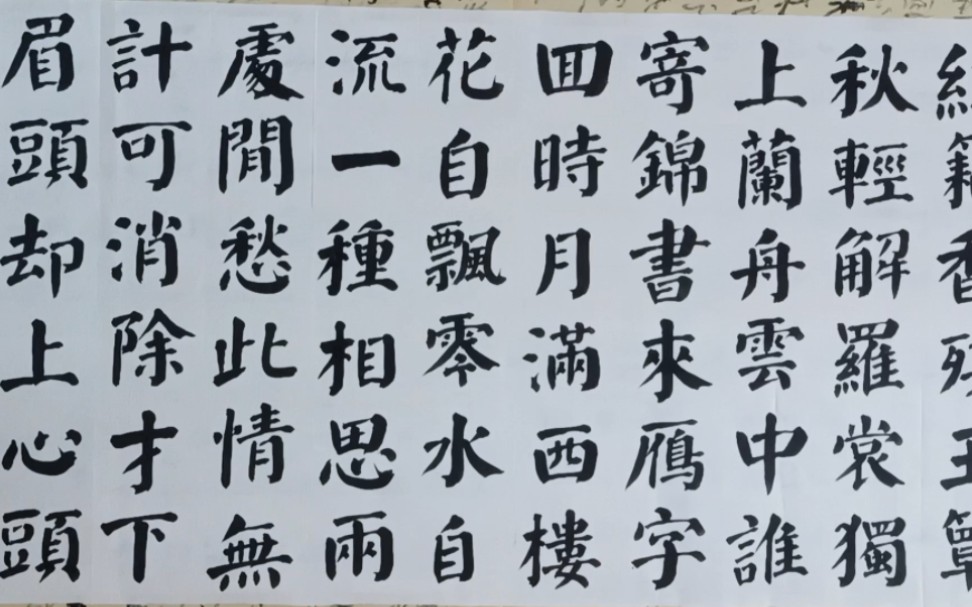 秋輕解羅裳獨
上蘭舟雲中誰
寄錦書來鴈字
囬時月滿西樓
花自飄零水自
流一種相思兩
處閒愁此情無
計可消除才下
眉頭却上心頭